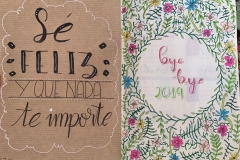 Sé
FELIZ
Y QUE NADA
te importe
bye
bye
2019